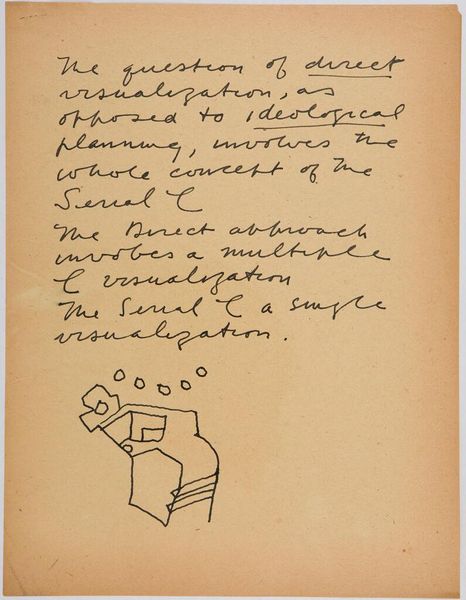 The question of direct
visualization, as
opposed to ideological
planning, involves the
whole concept of the
Serial C
The Direct approach
involves a multiple
C visualization
The Serial C a single
visualization.